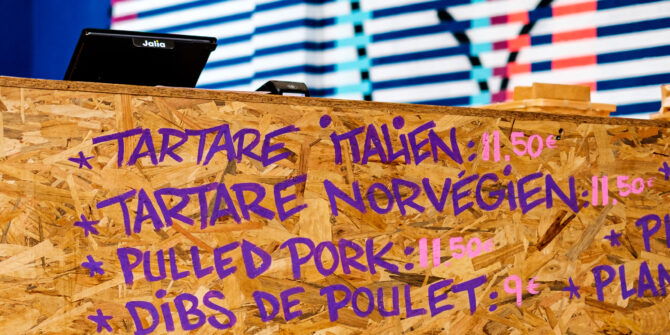 Jalia
* TARTARE iTALiEN: 11,50€
* TARTARE NORVÉGIEN: 11,50€
* PULLED PORK: 11,50€
* DiBS DE POULET: 9€